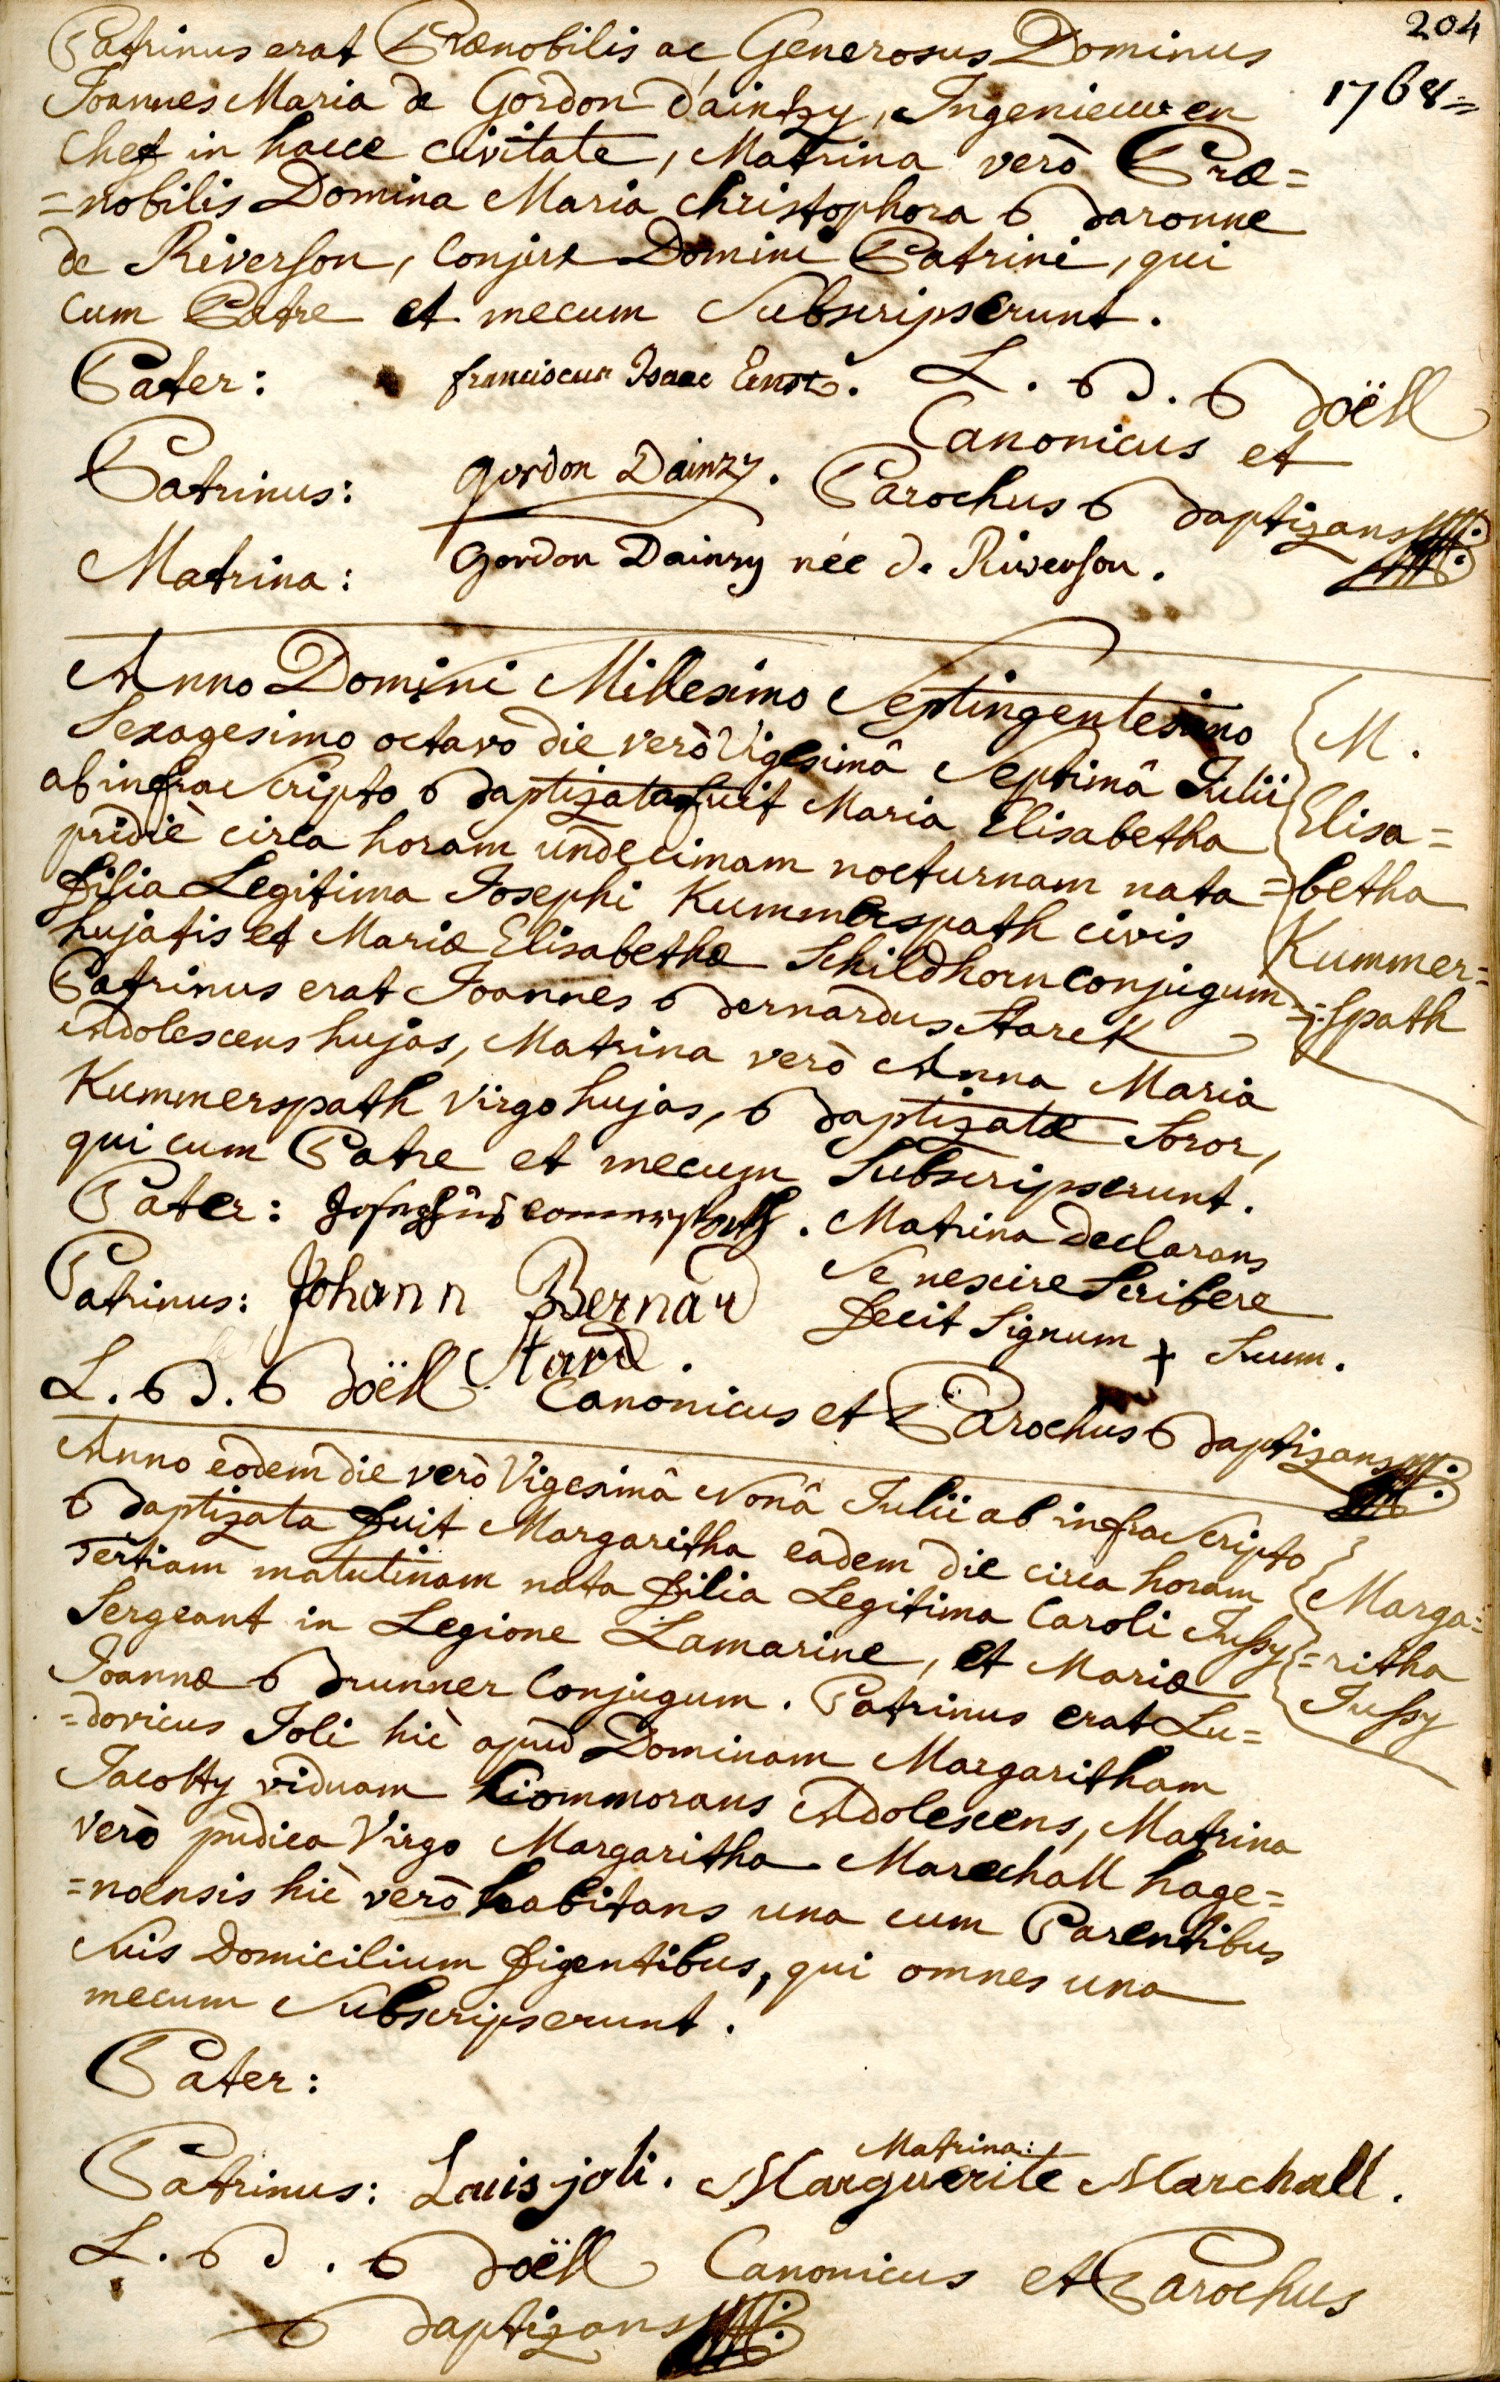 204
1768=
Patrinus erat Prænobilis ac Generosus Dominus
Joannes Maria de Gordon d'aintzy, Ingenieur en
Chef in hacce civitate, Matrina verò Præ=
=nobilis Domina Maria Christophora Baronne
de Riverson, Conjux Domini Patrini, qui
cum Patre et mecum Subscripserunt.
Pater: franciscus Isaac Ernst.
L. B. Boëll
Canonicus et
Patrinus: gordon Dainzy.
Parochus Baptizans
Matrina: gordon Dainzy née de Riverson.
Anno Domini Millesimo Septingentesimo
Sexagesimo octavo die verò Vigesimâ Septimâ Julii
ab infra Scripto Baptizata fuit Maria Elisabetha
pridiè circa horam undecimam nocturnam nata
filia Legitima Josephi Kummerspath civis
hujatis et Mariæ Elisabethæ Schildhorn conjugum
Patrinus erat Joannes Bernardus Starck
Adolescens hujas, Matrina verò Anna Maria
Kummerspath Virgo hujas, Baptizatæ Soror,
qui cum Patre et mecum Subscripserunt.
M.
Elisa=
=betha
Kummer=
=spath
Pater: Josephus . Matrina declarans
Se nescire Scribere
fecit Signum + Suum.
Patrinus: Johann Bernard
Starck.
L. B. Boëll Canonicus et Parochus Baptizans
Anno eodem die verò Vigesimâ Nonâ Julii ab infra Scripto
Baptizata fuit Margaritha eâdem die circa horam
Tertiam matutinam nata filia Legitima Caroli Jussy
Sergeant in Legione Lamarine, et Mariæ
Joannæ Brunner Conjugum. Patrinus erat Lu=
=dovicus Joli hic apud Dominam Margaritham
Jacotty viduam Commorans Adolescens, Matrina
verò pudica Virgo Margaritha Marechall hage=
=noensis hic verò habitans una cum Parentibus
Suis Domicilium figentibus, qui omnes una
mecum Subscripserunt.
Marga=
=ritha
Jussy
Pater:
Matrina:
Patrinus: Louis joli. Marguerite Marchall.
L. B. Boëll Canonicus et Parochus
Baptizans